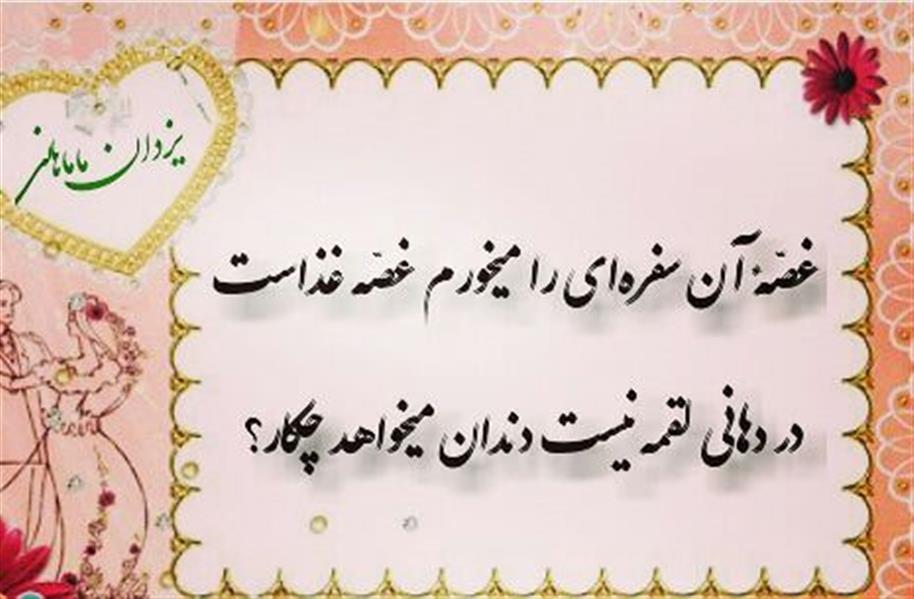 یزدان ماماهانی
غصّهٔ آن سفره‌ای را میخورم غصّه غذاست
در دهانی لقمه نیست دندان میخواهد چکار؟